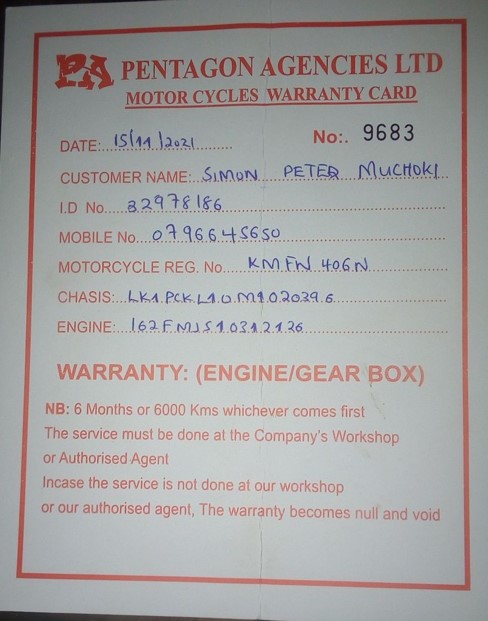 PA PENTAGON AGENCIES LTD
MOTOR CYCLES WARRANTY CARD
DATE: 15/11/2021 No:. 9683
CUSTOMER NAME: SIMON PETER MUCHOKI
I.D No. 32978186
MOBILE No. 0796645650
MOTORCYCLE REG. No. KMFW 406N
CHASIS: LK1PCKL10M1020396
ENGINE: 162FMJS10312126
WARRANTY: (ENGINE/GEAR BOX)
NB: 6 Months or 6000 Kms whichever comes first
The service must be done at the Company's Workshop
or Authorised Agent
Incase the service is not done at our workshop
or our authorised agent, The warranty becomes null and void